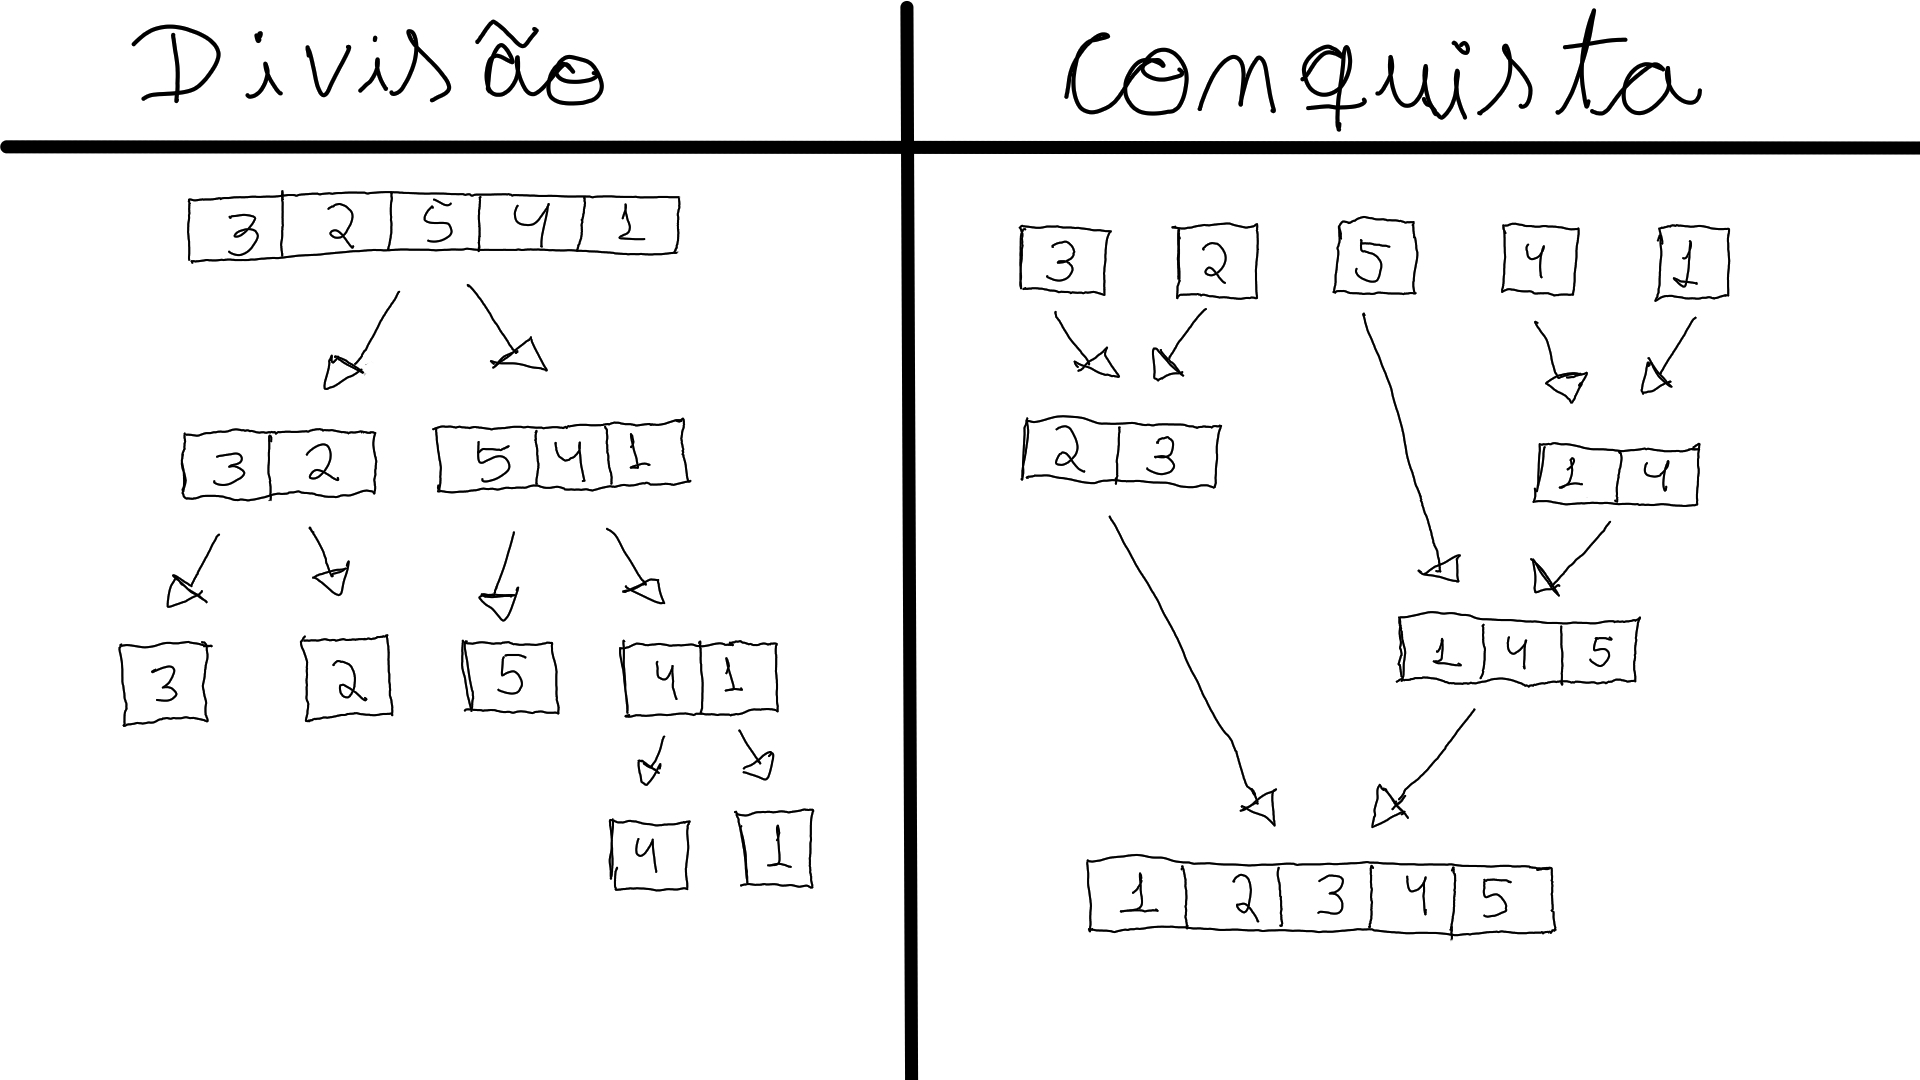 Divisão
3 2 5 4 1
3 2 5 4 1
3 2 5 4 1
4 1
Conquista
3 2 5 4 1
2 3 1 4
1 4 5
1 2 3 4 5